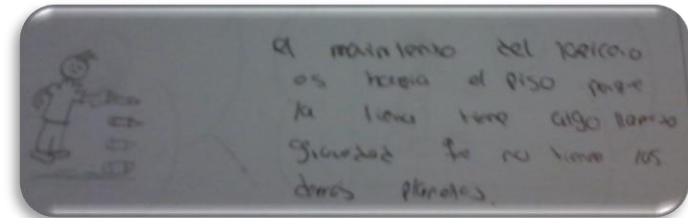 el movimiento del lapicero
es hacia el piso porque
la tierra tiene algo llamado
gravedad que no tiene los
demas planetas.